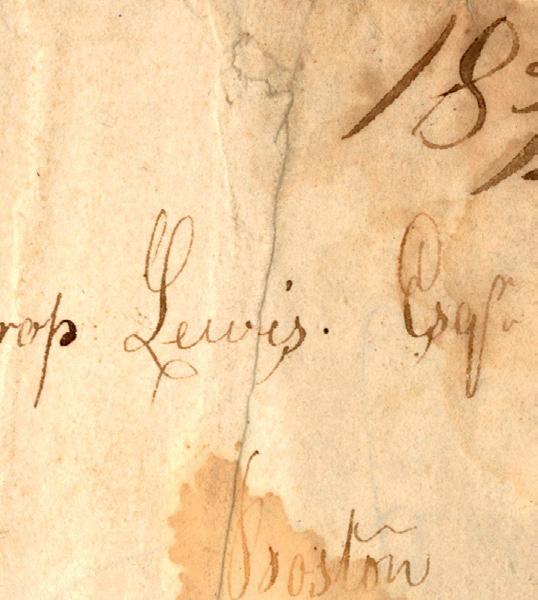 18¾
rop Lewis. Esqr
Boston